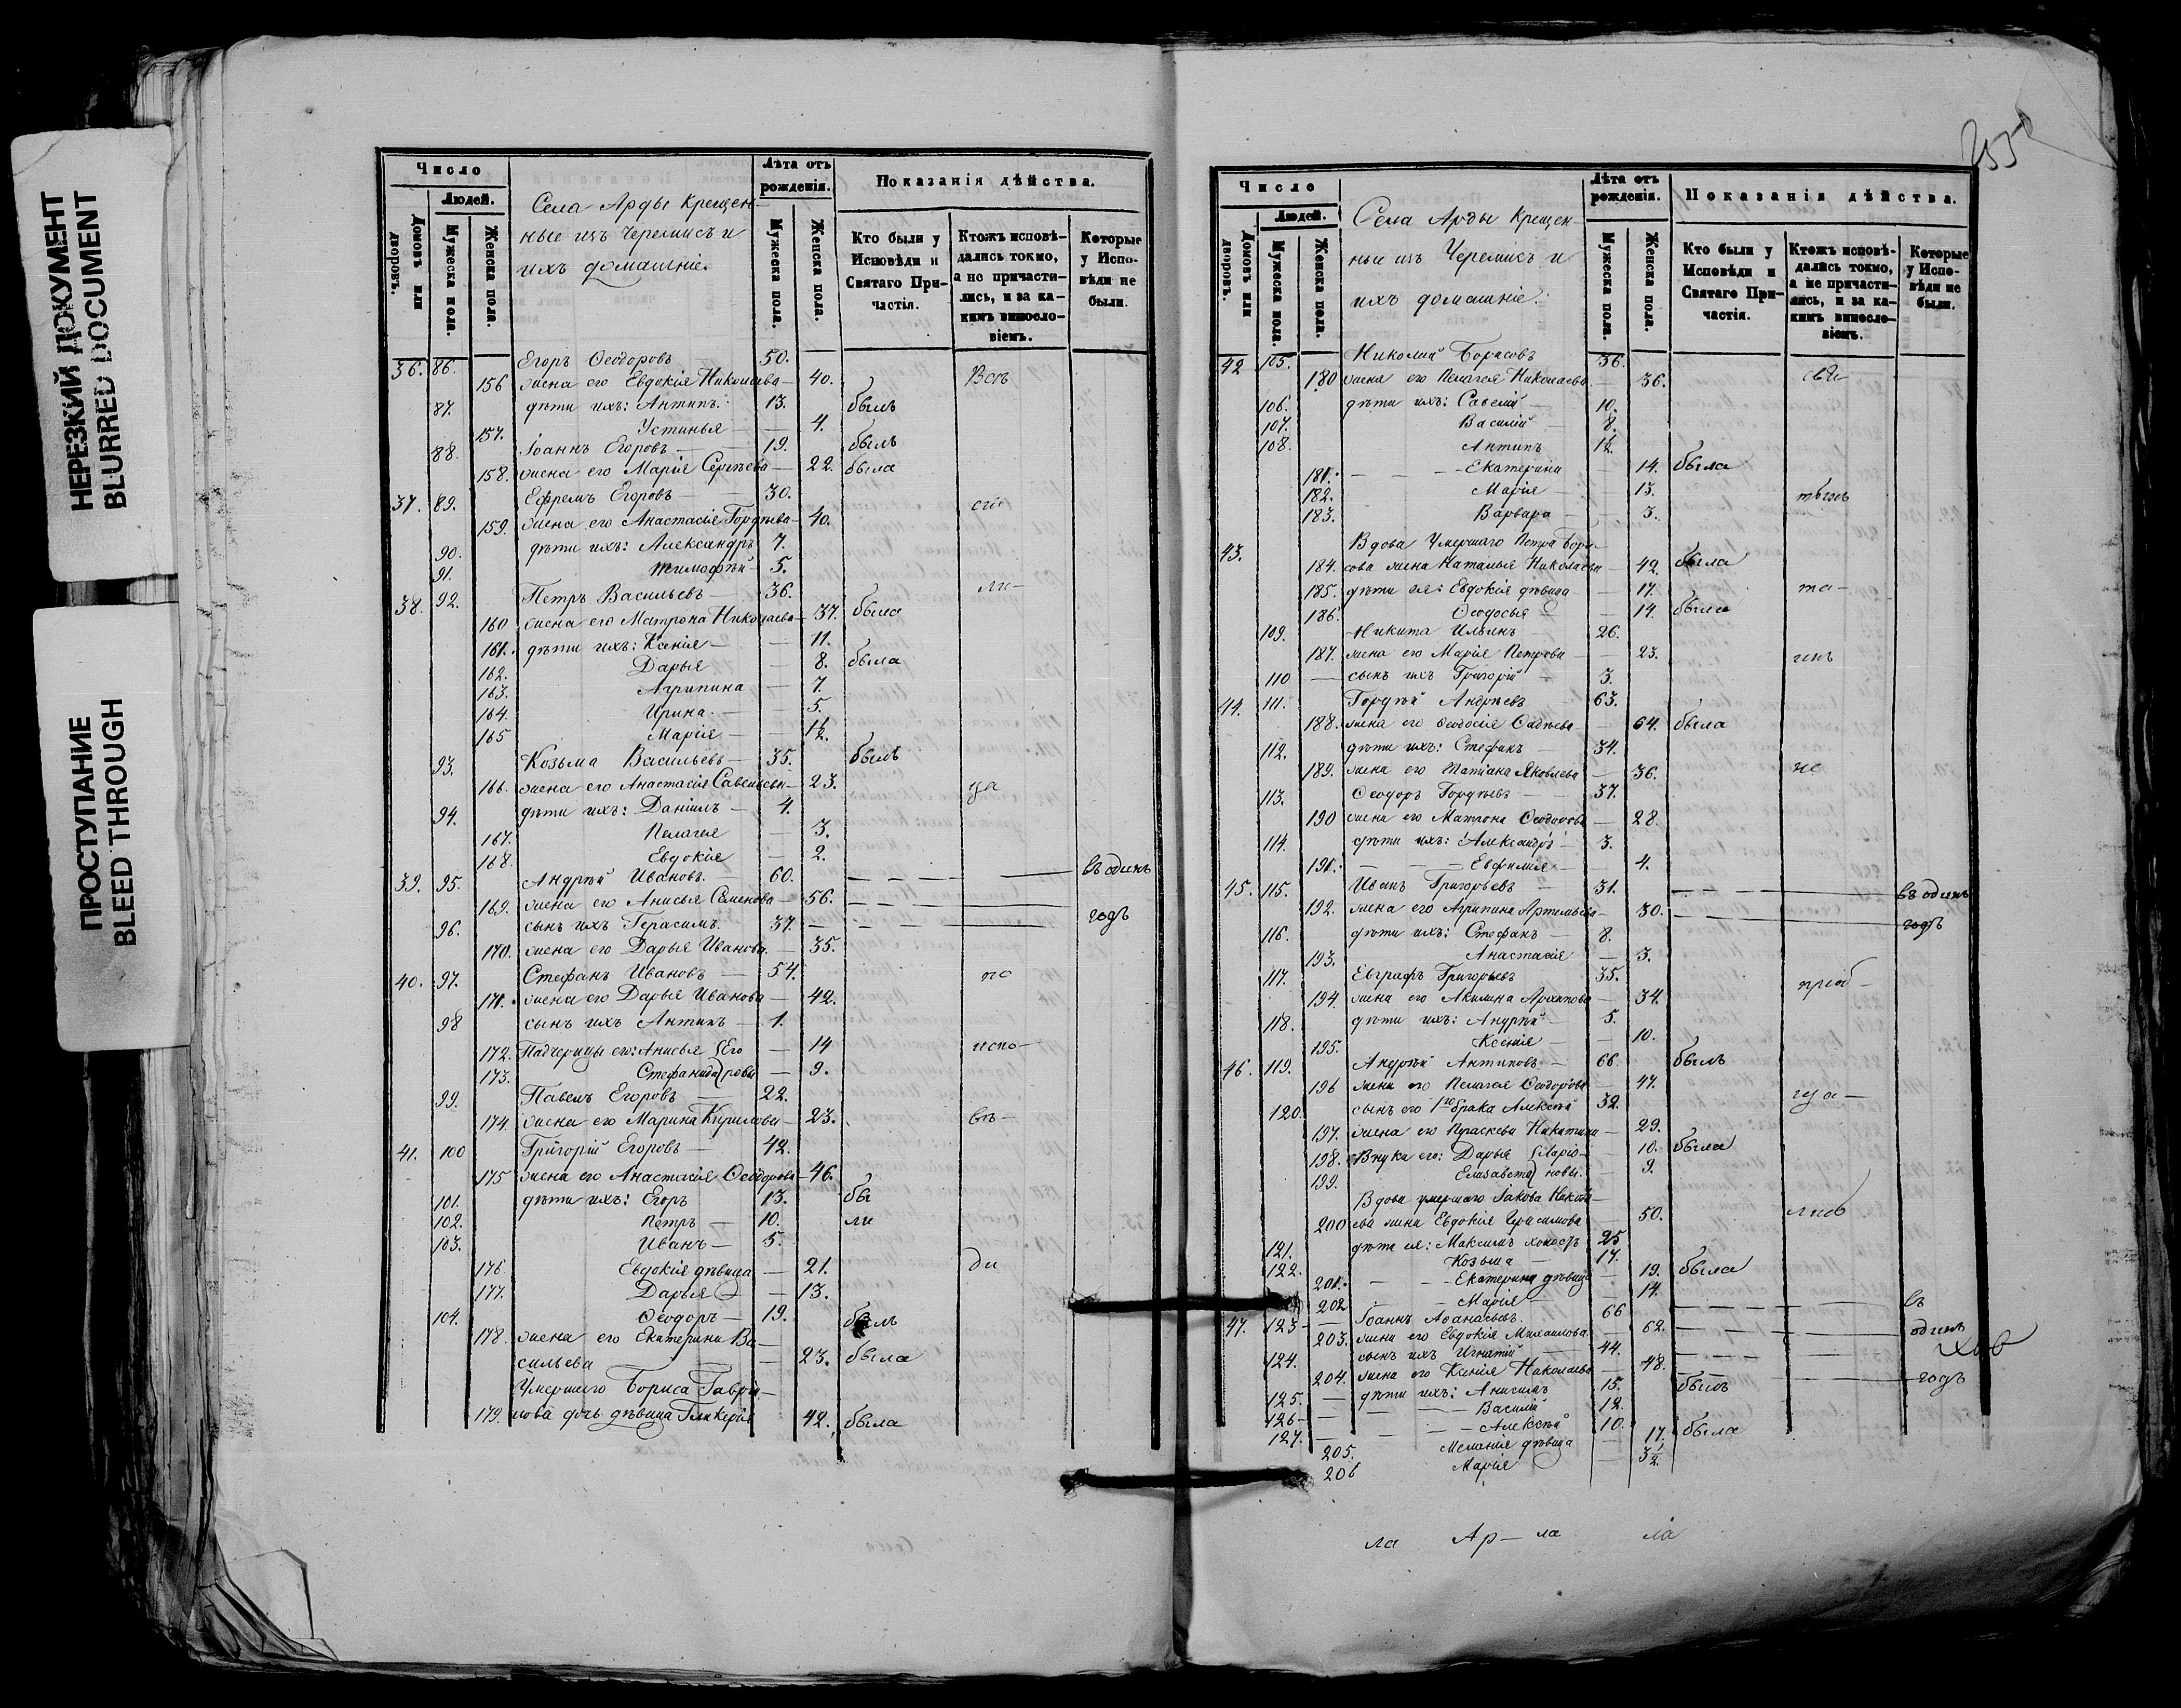 НЕРЕЗКИЙ ДОКУМЕНТ
BLURRED DOCUMENT
ПРОСТУПАНИЕ
BLEED THROUGH
Число
Людей.
Домовъ или дворовъ.
Мужеска пола.
Женска пола.
Села Арды крещен-
ные изъ Черемисъ и
ихъ домашніе.
Лѣта отъ рожденія.
Мужеска пола.
Женска пола.
Показанія дѣйства.
Кто были у Исповѣди и Святаго Причастія.
Ктожъ исповѣдались токмо, а не причастились, и за какимъ винословіемъ.
Которые у Исповѣди не были.
36. 86. Егоръ Ѳеодоровъ 50.
156 жена его Евдокія Николаева — 40. Всѣ
87. дѣти ихъ: Антипъ. 13. былъ
157. Устинья — 4.
88. Іоаннъ Егоровъ — 19. былъ
158. жена его Марія Сергѣева — 22. была
37. 89. Ефремъ Егоровъ — 30. сіи
159. жена его Анастасія Гордѣева — 40.
90. дѣти ихъ: Александръ 7.
91. Тимофѣй 5.
38. 92. Петръ Васильевъ — 36. ли—
160 жена его Матрона Николаева — 37. была
161. дѣти ихъ: Ксенія — 11.
162. Дарья — 8. была
163. Агрипина — 7.
164. Ирина — 5.
165 Марія — 1½.
93. Козьма Васильевъ — 35. былъ
166. жена его Анастасія Савельева — 23.
94. дѣти ихъ: Даніилъ — 4.
167. Пелагея — 3.
168. Евдокія — 2.
39. 95. Андрѣй Ивановъ. 60. — — — въ одинъ
169. жена его Анисья Семенова — 56. — — —
96. сынъ ихъ Герасимъ. 37. — — — годъ
170. жена его Дарья Иванова. — 35.
40. 97. Стефанъ Ивановъ — 54. по
171. жена его Дарья Иванова — 42.
98 сынъ ихъ Антипъ — 1.
172. Падчерицы его: Анисья { Его — 14 испо—
173. Стефанида { ровы — 9.
99. Павелъ Егоровъ — 22.
174. жена его Марина Кирилова — 23. вѣ—
41. 100 Григорій Егоровъ — 42.
175 жена его Анастасія Ѳеодорова — 46.
101. дѣти ихъ: Егоръ 13. бы
102. Петръ — 10. ли
103. Иванъ — 5.
176 Евдокія дѣвица — 21. ди
177. Дарья — 13.
104. Ѳеодоръ — 19. былъ
178. жена его Екатерина Ва—
сильева — 23. была
Умершаго Бориса Гаврі—
179. лова дочь дѣвица Гликерія 42. была
Число
Людей.
Домовъ или дворовъ.
Мужеска пола.
Женска пола.
Села Арды крещен-
ные изъ Черемисъ и
ихъ домашніе.
Лѣта отъ рожденія.
Мужеска пола.
Женска пола.
Показанія дѣйства.
Кто были у Исповѣди и Святаго Причастія.
Ктожъ исповѣдались токмо, а не причастились, и за какимъ винословіемъ.
Которые у Исповѣди не были.
42 105. Николай Борисовъ 36.
180 жена его Пелагея Николаева — 36. свя
106. дѣти ихъ: Савелій — 10.
107. Василій — 8.
108. Антипъ 1½.
181. — — Екатерина — 14. была
182. Марія — 13. тымъ
183. Варвара — 3.
43. Вдова Умершаго Петра Бори—
184. сова жена Наталья Николаева — 42. была
185. дѣти ея: Евдокія дѣвица — 17. та—
186. Ѳеодосья — 14. была
109. Никита Ильинъ 26.
187. жена его Марія Петрова — 23.
110 — сынъ ихъ Григорій — 3.
44. 111. Гордѣй Андрѣевъ — 63.
188. жена его Ѳеодосія — 64. была
112. дѣти ихъ: Стефанъ 34.
189. жена его Татіана Яковлева — 36. не
113. Ѳеодоръ Гордѣевъ — 37.
190 жена его Матрона Ѳеодорова — 28.
114. дѣти ихъ: Александръ — 3.
191. — — Евфимія 4.
45. 115. Иванъ Григорьевъ 31. — — — въ одинъ
192. жена его Агрипина Артемьева — 30. — — годъ
116. дѣти ихъ: Стефанъ — 8.
193. Анастасія — 3.
117. Евграфъ Григорьевъ 35. пріоб—
194. жена его Акилина Архипова — 34.
118. дѣти ихъ: Андрѣй 5.
195. Ксенія — 10.
46. 119. Андрѣй Антиповъ 66. былъ
196 жена его Пелагея Ѳеодорова 47.
120. сынъ его 1го брака Алексѣй 32.
197. жена его Параскева Никитина — 29.
198. Внуки его: Дарья { Ларіо— 10. была
199. Елизавета { новы. — 9.
Вдова умершаго Іакова
200 жена Евдокія Герасимова 50. лись
121. дѣти ея: Максимъ холостъ 25
122. Козьма — 17.
201. — — Екатерина дѣвица — 19. была
202 — Марія — 14.
47. 123 — Іоаннъ Аѳанасьевъ. 66 — — — въ
203. жена его Евдокія Михаилова. 62. — — одинъ
124. сынъ ихъ Игнатій — 44. — — —
204. жена его Ксенія Николаева 48. — — годъ
125. — дѣти ихъ: Анисимъ 15. былъ
126 — Василій 12.
127. — — Алексѣй 10.
205. Меланія дѣвица — 17. была
206 Марія — 3½.
ла Ар— ла ла